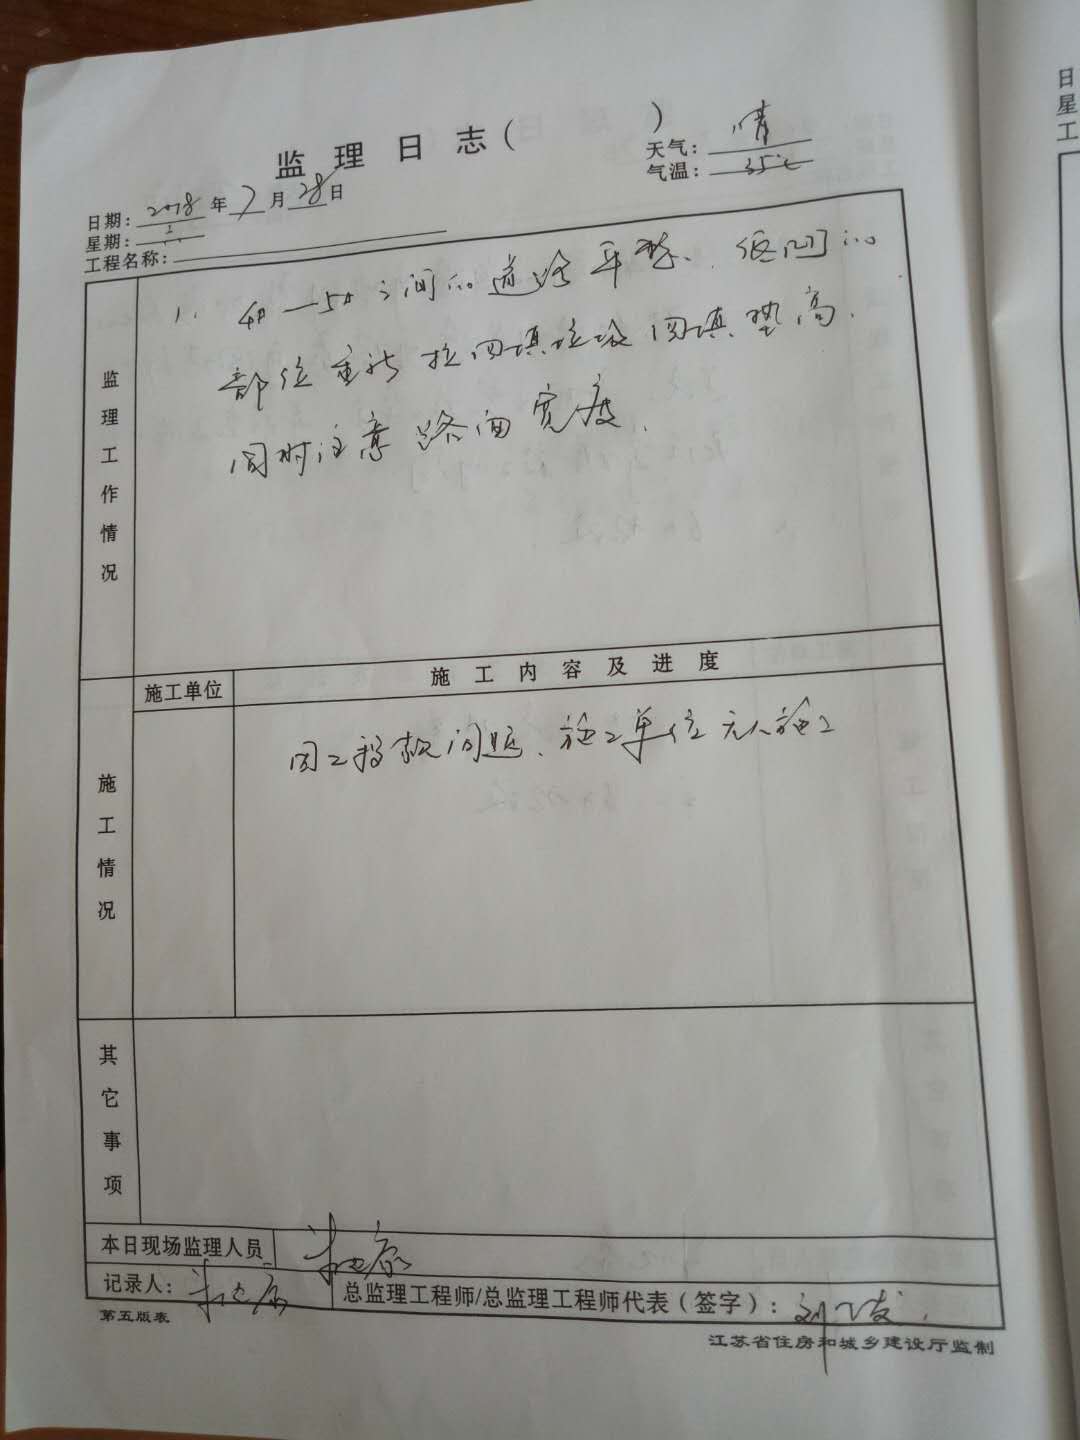 监理日志( )
天气: 晴
气温: 35℃
日期: 2018年7月28日
星期: 六
工程名称:
监理工作情况
1. 4#—5#之间的道路平整、低凹的
部位重新拉回填垃圾回填垫高.
同时注意路面宽度.
施工情况
施工单位
施工内容及进度
因工程款问题、施工单位无人施工
其它事项
本日现场监理人员
记录人:
总监理工程师/总监理工程师代表(签字):
第五版表
江苏省住房和城乡建设厅监制
日
星
工